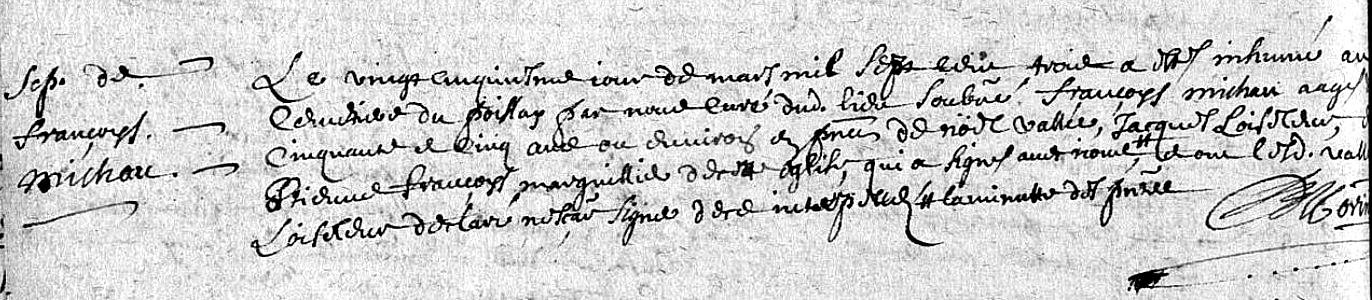 Sep. de
françoys
michau
Le vingt cinquiesme jour de mars mil sept cent trois a esté inhumé au
Cemetiere du poislay par nous Curé dud. lieu soubz.né françoys michau aagé
Cinquante et Cinq ans ou environ en pnce de noël vallée, Jacques Loiseleur,
Etienne françoys marguillier de cette église, qui a signé avec nous et ont lesd. vall
Loiseleur declaré ne scavoir signer de ce interpellez la minutte des pntes